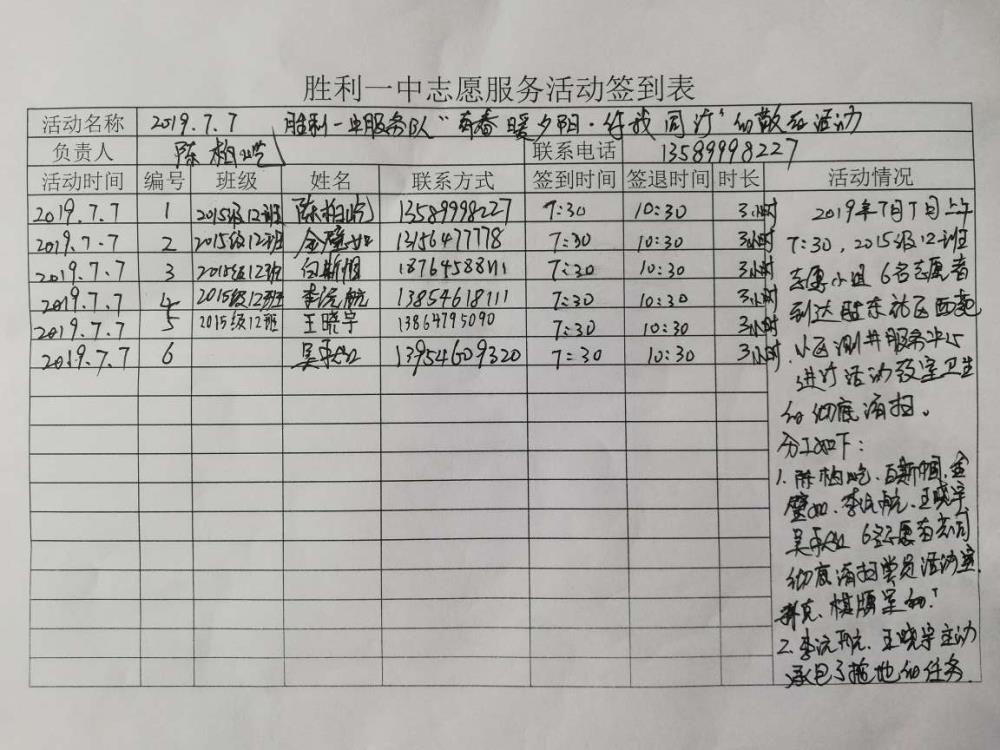 胜利一中志愿服务活动签到表
活动名称 2019.7.7 胜利一中服务队“青春暖夕阳·伴我同行”的敬老活动
负责人 陈柏屹 联系电话 13589998227
活动时间 编号 班级 姓名 联系方式 签到时间 签退时间 时长 活动情况
2019.7.7 1 2015级12班 陈柏屹 13589998227 7:30 10:30 3小时
2019.7.7 2 2015级12班 金璧如 13156477778 7:30 10:30 3小时
2019.7.7 3 2015级12班 18764588111 7:30 10:30 3小时
2019.7.7 4 2015级12班 李沅航 13854618111 7:30 10:30 3小时
2019.7.7 5 2015级12班 王晓宇 13864795090 7:30 10:30 3小时
2019.7.7 6 吴 13954609320 7:30 10:30 3小时
2019年7月7日上午
7:30，2015级12班
志愿小组6名志愿者
到达胜东社区西
小区测井服务中心
进行活动教室卫生
的彻底清扫。
分工如下：
1.陈柏屹、金
璧如、李沅航、王晓宇、
吴 6名志愿者共同
彻底清扫党员活动室、
棋牌室
2.李沅航、王晓宇主动
承包了拖地的任务.